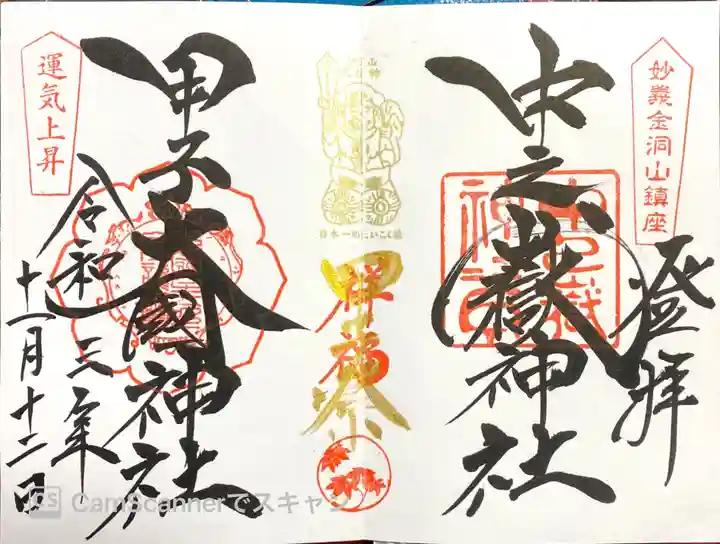 妙義金洞山鎮座
登拝
中之嶽神社
甲子
祥福
祭
日本一のだいこく様
運気上昇
甲子大國神社
令和三年
十一月十二日
CamScannerでスキャン